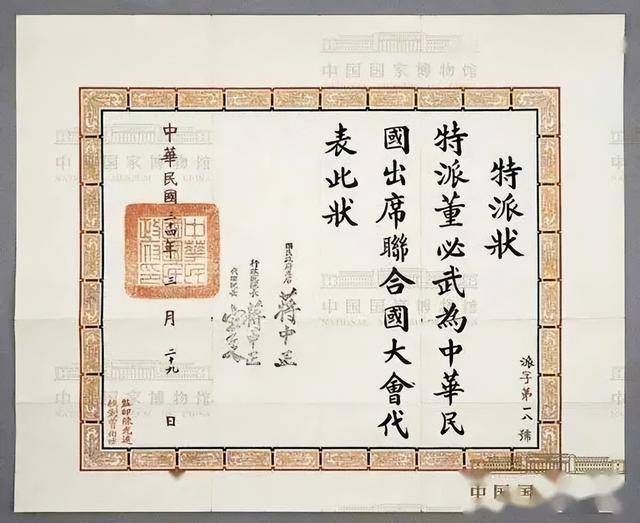 特派狀
特派董必武為中華民
國出席聯合國大會代
表此狀
國民政府主席 蔣中正
行政院院長 蔣中正
代理院長 宋子文
中華民國三十四年三月二十九日
派字第一八號
監印陳光遠
中国国家博物馆
NATIONAL MUSEUM OF CHINA
中国国家博物馆
中国国家博物馆
中国国